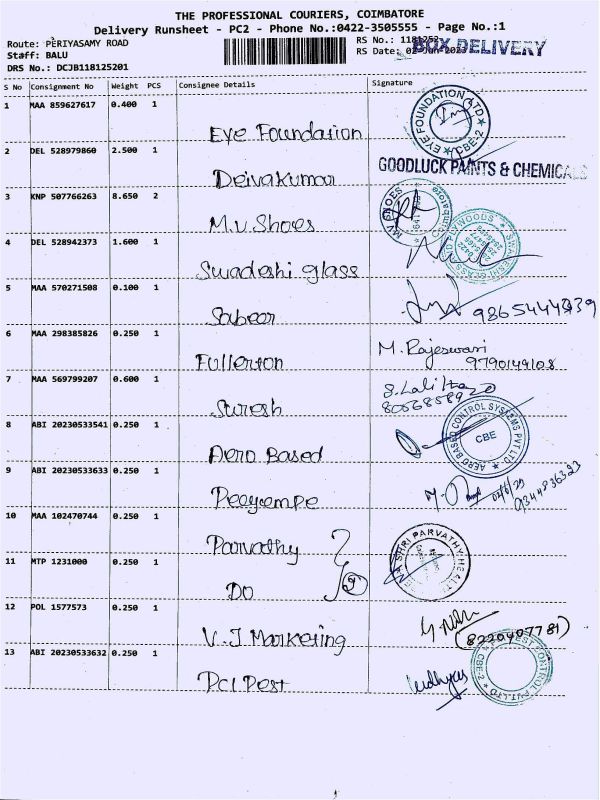 THE PROFESSIONAL COURIERS, COIMBATORE
Delivery Runsheet - PC2 - Phone No.:0422-3505555 - Page No.:1
Route: PERIYASAMY ROAD
RS No.: 1181252
Staff: BALU
RS Date: 02-Jun-2023
BOX DELIVERY
DRS No.: DCJB118125201
S No Consignment No Weight PCS Consignee Details Signature
1 MAA 859627617 0.400 1 Eye Foundation
EYE FOUNDATION LTD CBE-2
2 DEL 528979860 2.500 1 Deivakumar
GOODLUCK PAINTS & CHEMICALS
3 KNP 507766263 8.650 2 M.V.Shoes
SHOES
4 DEL 528942373 1.600 1 Swadeshi glass
SWADESHI GLASS PLYWOODS
5 MAA 570271508 0.100 1 Sabeer
6 MAA 298385826 0.250 1 Fullerton
M. Rajeswari
9790149108
7 MAA 569799207 0.600 1 Suresh
S. Lalitha
8 ABI 20230533541 0.250 1 Aero Based
AERO BASED CONTROL SYSTEMS PVT LTD CBE
9 ABI 20230533633 0.250 1
9344836323
10 MAA 102470744 0.250 1 Parvathy
SHRI PARVATHY HEALTH
11 MTP 1231000 0.250 1 DO
12 POL 1577573 0.250 1 V.J. Marketing
(8220407781)
13 ABI 20230533632 0.250 1 PCI Pest
PEST CONTROL PVT.LTD CBE-2